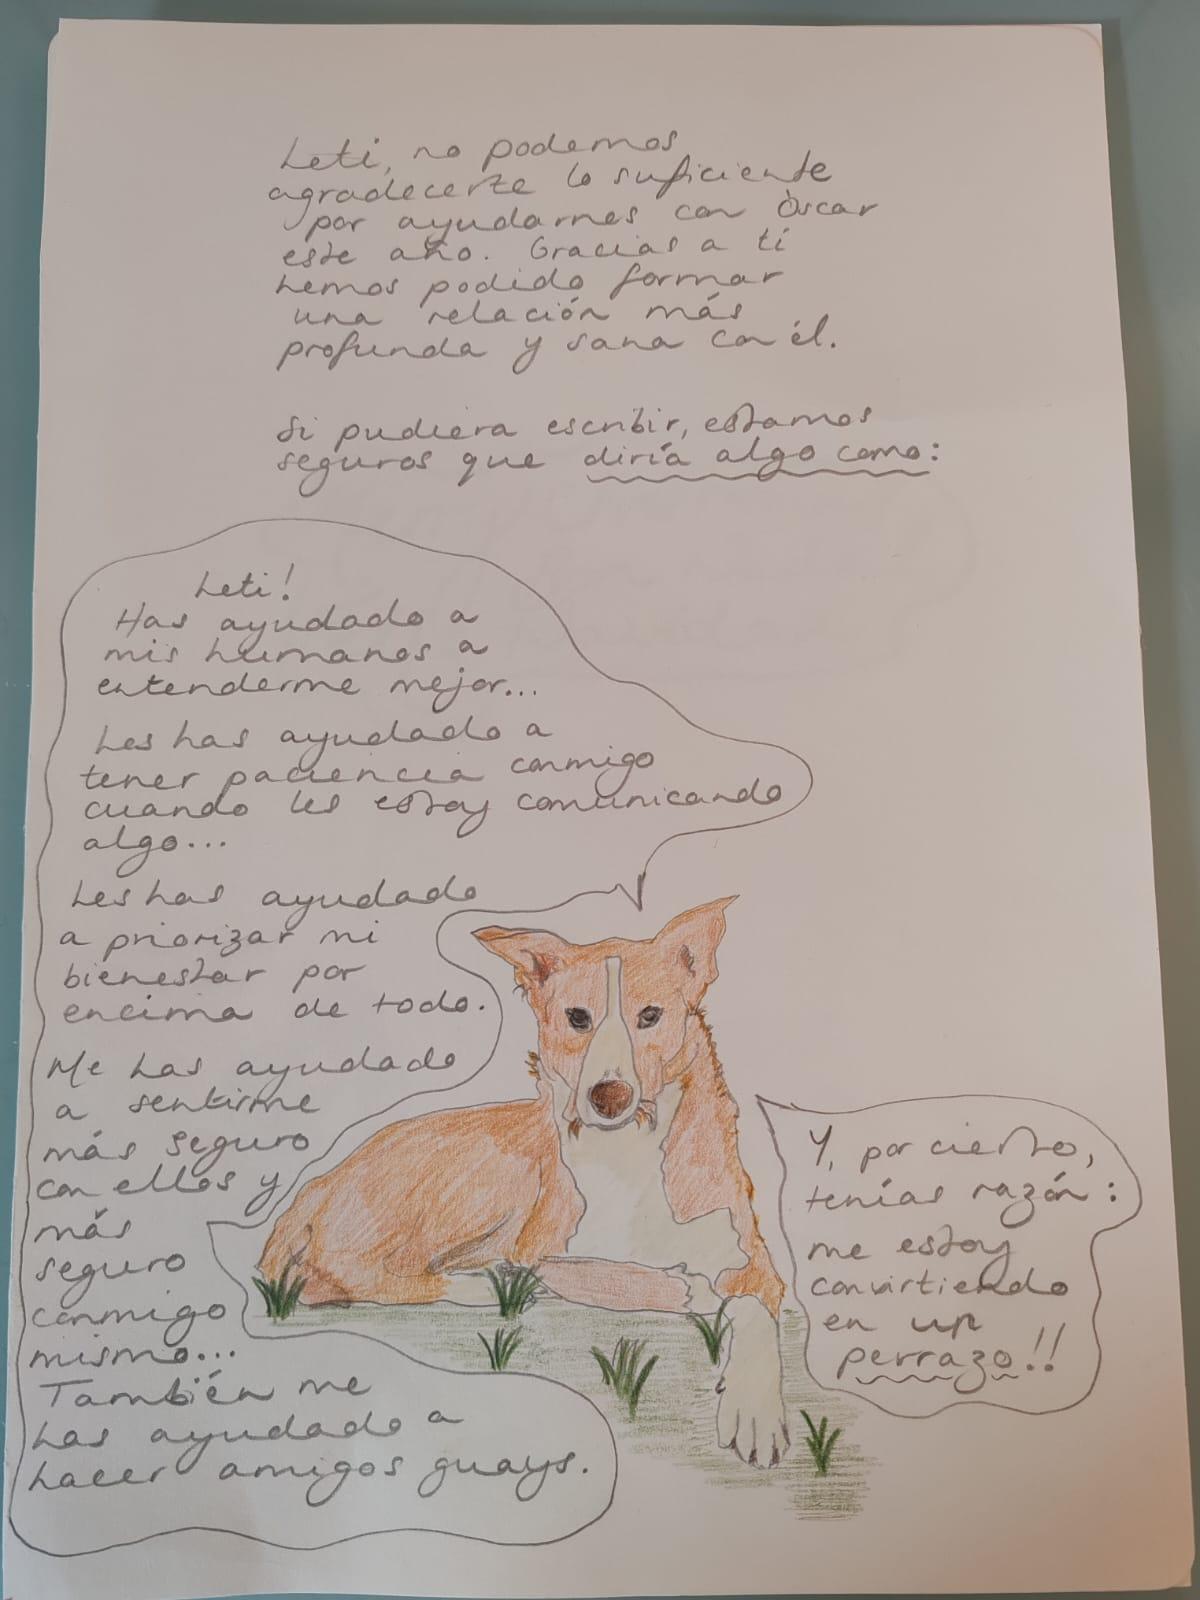 Leti, no podemos
agradecerte lo suficiente
por ayudarnos con Òscar
este año. Gracias a ti
hemos podido formar
una relación más
profunda y sana con él.
Si pudiera escribir, estamos
seguros que diría algo como:
Leti!
Has ayudado a
mis humanos a
entenderme mejor...
Les has ayudado a
tener paciencia conmigo
cuando les estoy comunicando
algo...
Les has ayudado
a priorizar mi
bienestar por
encima de todo.
Me has ayudado
a sentirme
más seguro
con ellos y
más
seguro
conmigo
mismo...
También me
has ayudado a
hacer amigos guays.
Y, por cierto,
tenías razón:
me estoy
convirtiendo
en un
perrazo!!